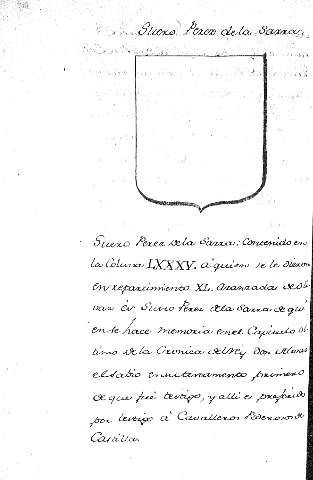 Suero Perez de la Sarra.
Suero Perez de la Sarra. Contenido en
la Coluna LXXXV. á quien se le dieron
en repartimiento XL. Aranzadas de Oli
var Es Suero Perez de la Sarra de qui
en se hace memoria en el Capitulo ul
timo de la Cronica del Rey Don Alonso
el Sabio en su testamento, primero
de que fué testigo, y alli es preferido
por testigo á Cavalleros Poderosos de
Castilla.